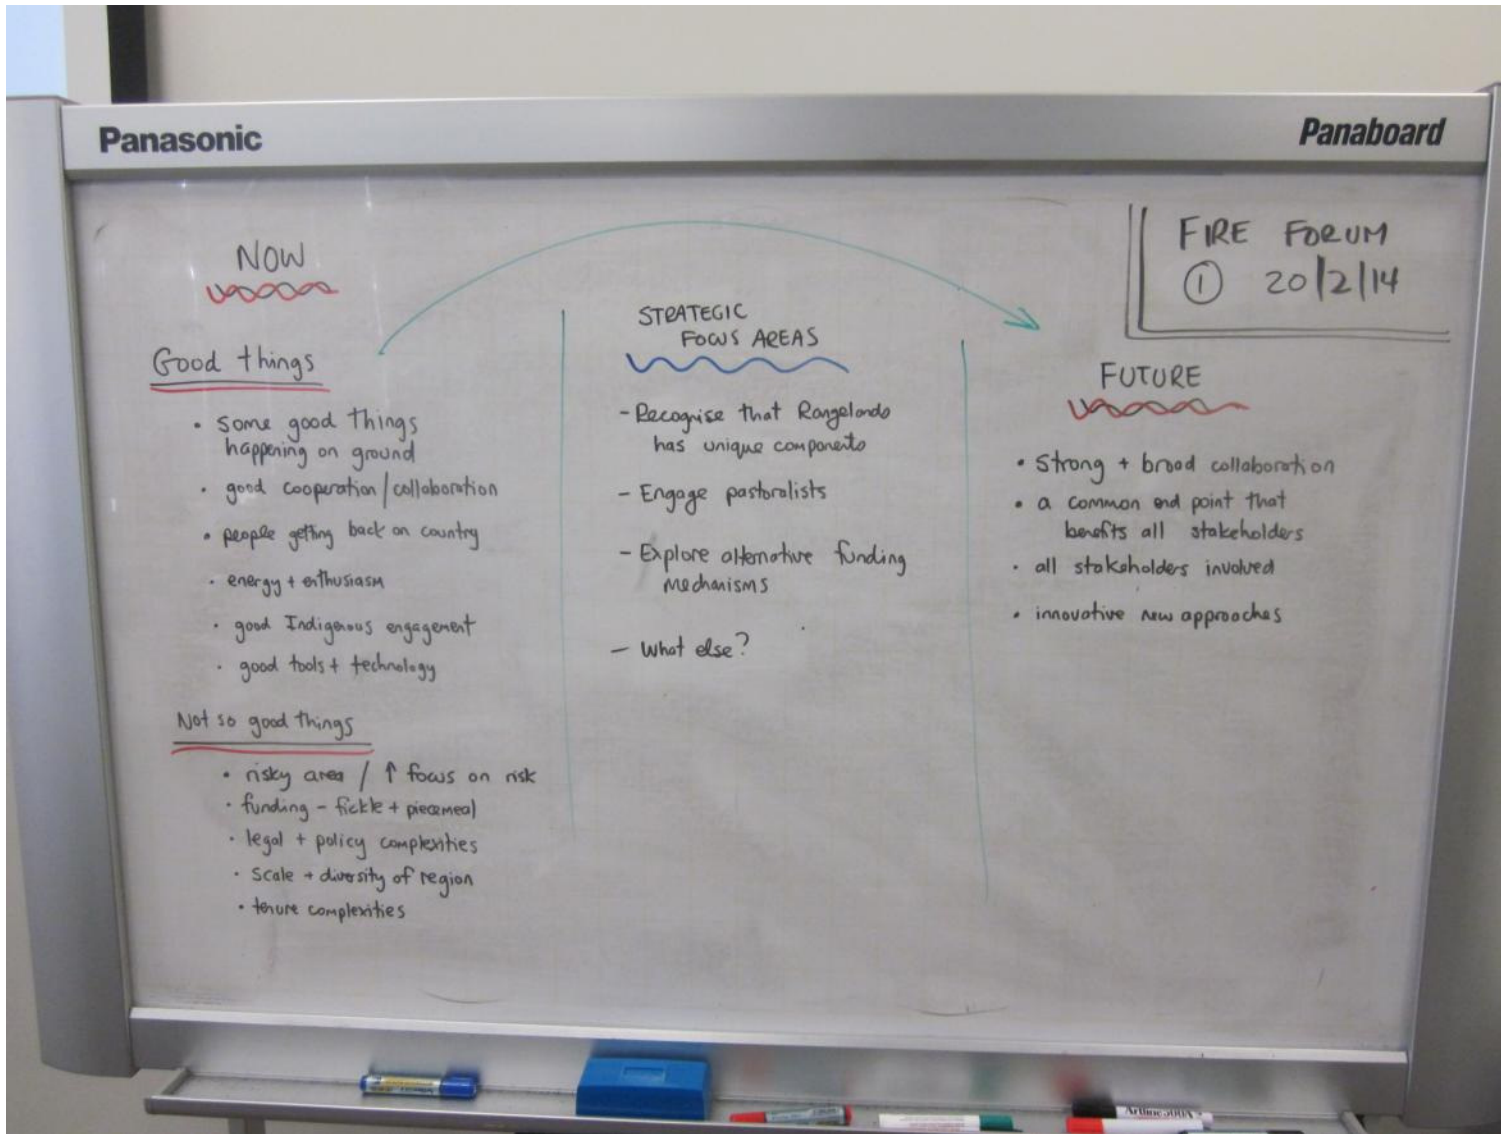 Panasonic
Panaboard
FIRE FORUM
① 20/2/14
NOW
Good things
• Some good things
happening on ground
• good cooperation/collaboration
• people getting back on country
• energy + enthusiasm
• good Indigenous engagement
• good tools + technology
Not so good things
• risky area / ↑ focus on risk
• funding - fickle + piecemeal
• legal + policy complexities
• scale + diversity of region
• tenure complexities
STRATEGIC
FOCUS AREAS
- Recognise that Rangelands
has unique components
- Engage pastoralists
- Explore alternative funding
mechanisms
- What else?
FUTURE
• strong + broad collaboration
• a common end point that
benefits all stakeholders
• all stakeholders involved
• innovative new approaches
Artline 500A